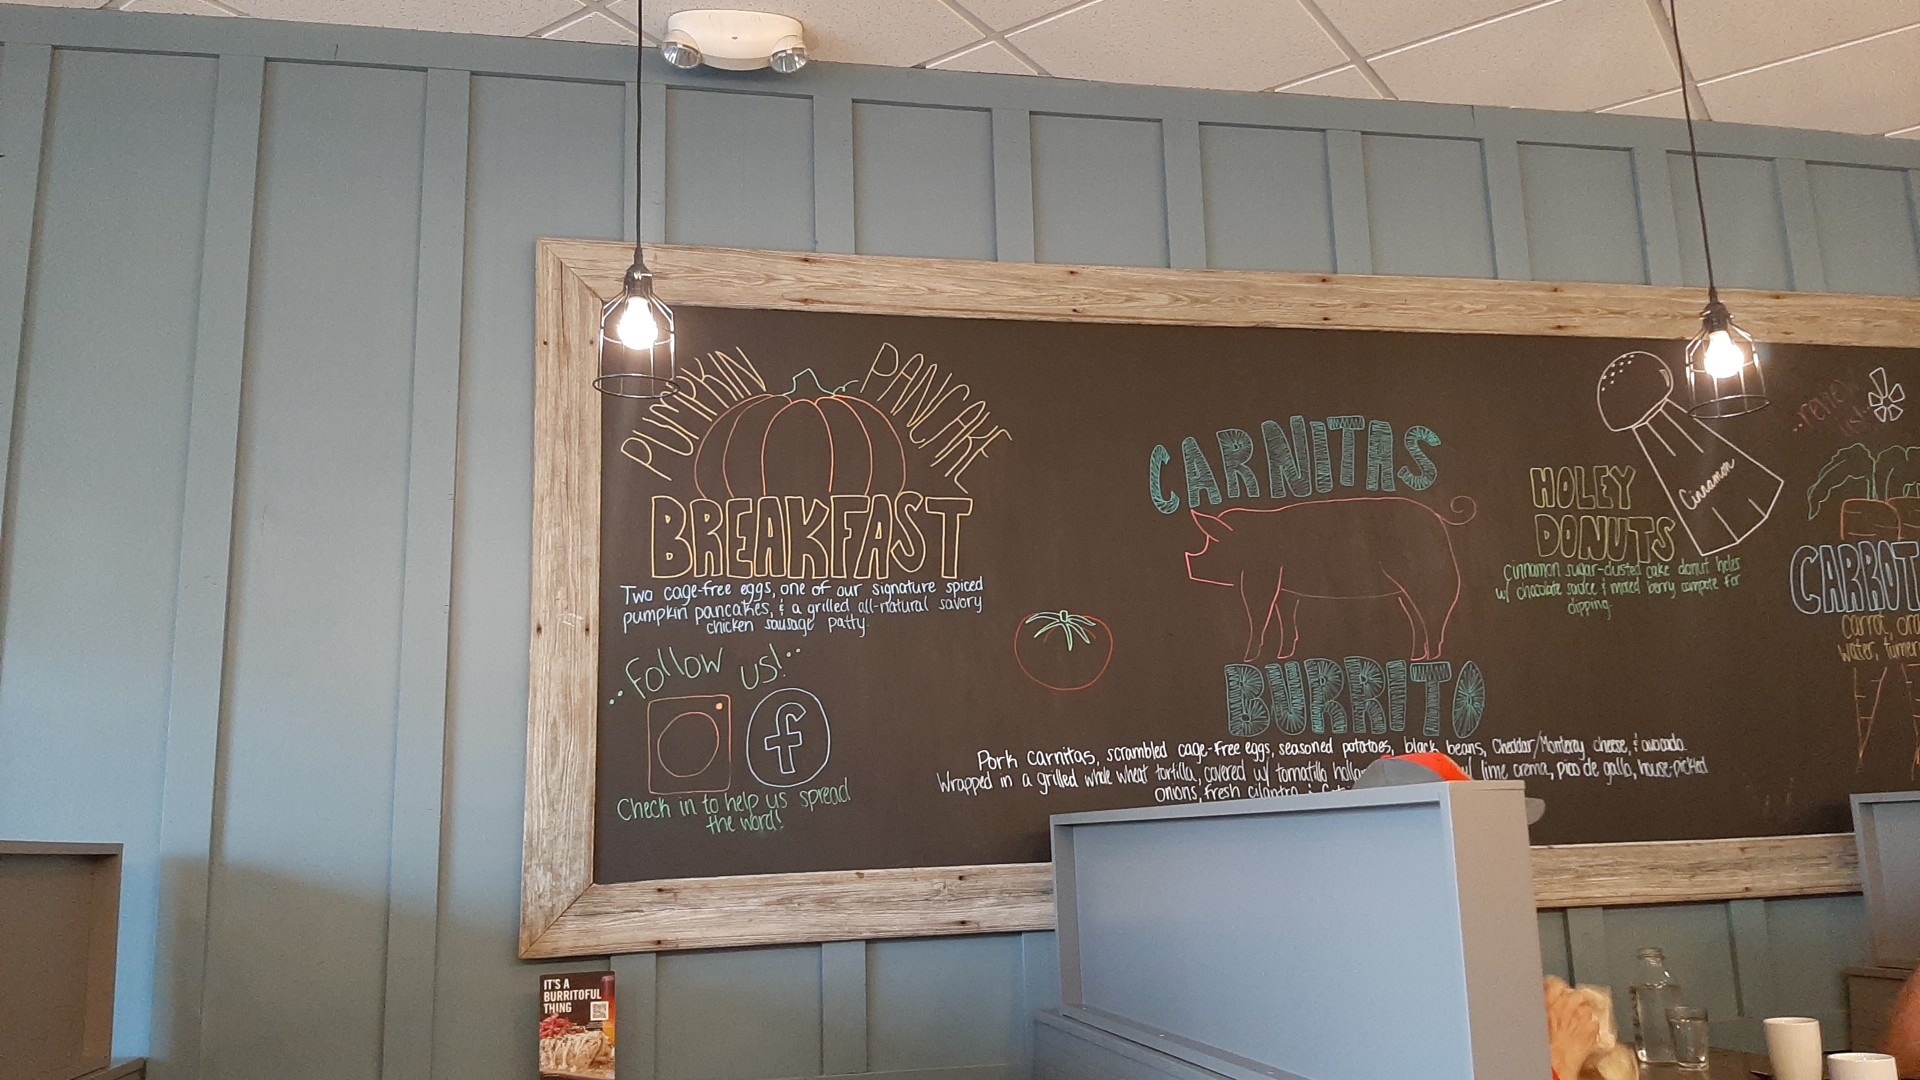 PUMPKIN PANCAKE
BREAKFAST
Two cage-free eggs, one of our signature spiced
pumpkin pancakes, & a grilled all-natural savory
chicken sausage patty.
..Follow us!..
f
Check in to help us spread
the word!
CARNITAS
BURRITO
Pork carnitas, scrambled cage-free eggs, seasoned potatoes, black beans, Cheddar/Monterey cheese, & avocado.
Wrapped in a grilled whole wheat tortilla, covered w/ tomatillo lime crema, pico de gallo, house-pickled
onions, fresh cilantro &
Cinnamon
HOLEY
DONUTS
Cinnamon sugar-dusted cake donut holes
w/ chocolate sauce & mixed berry compote for
dipping.
CARROT
Carrot,
water,
IT'S A
BURRITOFUL
THING